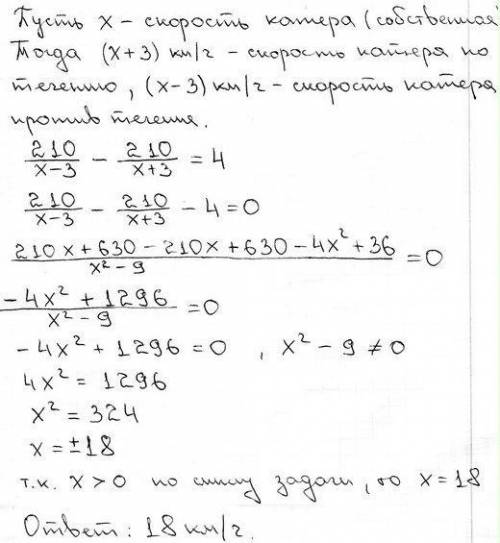 Пусть x – скорость катера (собственная
Тогда (x+3) км/г – скорость катера по
течению, (x–3) км/г – скорость катера
против течения.
210/(x–3) – 210/(x+3) = 4
210/(x–3) – 210/(x+3) – 4 = 0
(210x + 630 – 210x + 630 – 4x² + 36)/(x² – 9) = 0
(–4x² + 1296)/(x² – 9) = 0
–4x² + 1296 = 0 , x² – 9 ≠ 0
4x² = 1296
x² = 324
x = ±18
т.к. x > 0 по смыслу задачи, то x = 18
Ответ: 18 км/г.